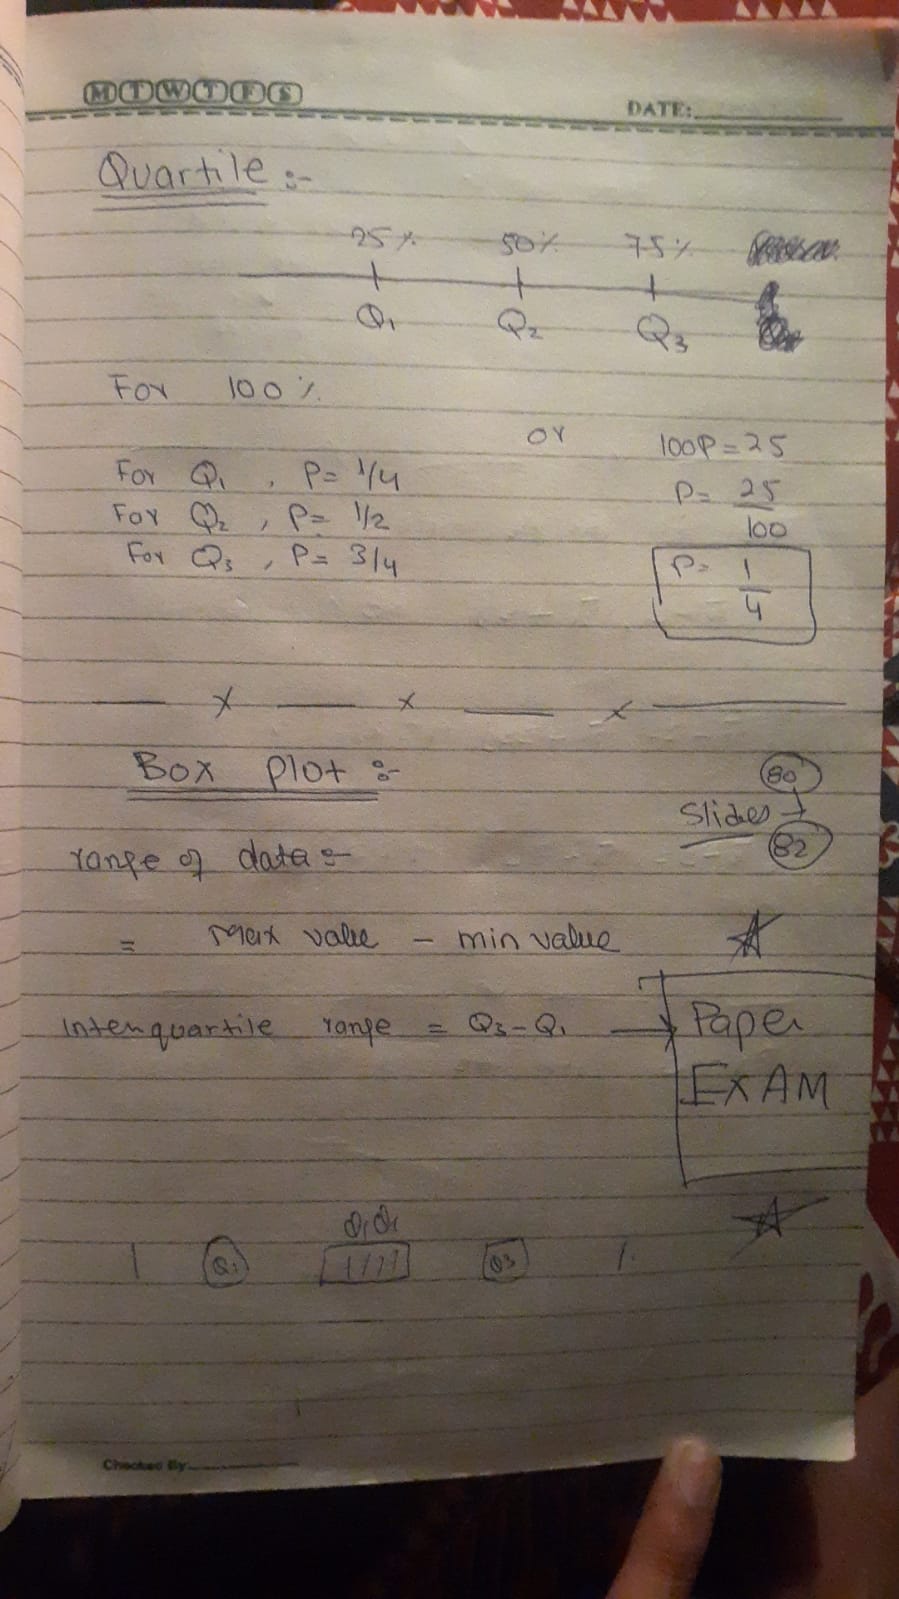 M T W T F S
DATE:
Quartile :-
25% 50% 75%
Q1 Q2 Q3
For 100%
or 100P = 25
For Q1 , P= 1/4
P= 25/100
For Q2 , P= 1/2
For Q3 , P= 3/4
P= 1/4
x x x
Box Plot :-
80
Slides
82
range of data :-
= Max value - min value
Interquartile range = Q3-Q1 → Paper
EXAM
Q1 Q3
Checked By